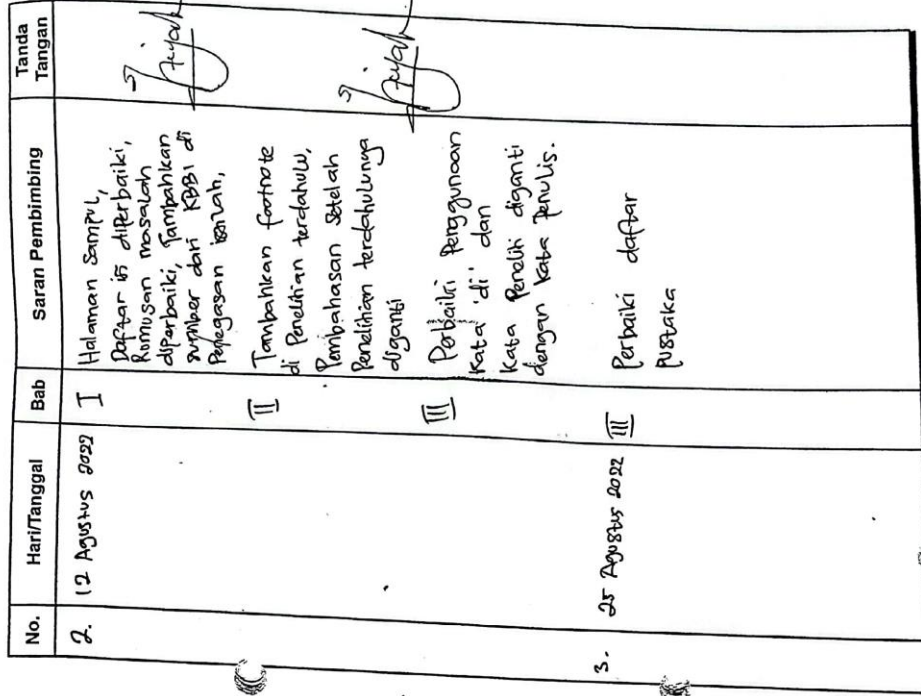 No.
Hari/Tanggal
Bab
Saran Pembimbing
Tanda
Tangan
2.
12 Agustus 2022
I
Halaman Sampul,
Daftar isi diperbaiki,
Rumusan masalah
diperbaiki, Tambahkan
sumber dari KBBI di
Penegasan istilah,
II
Tambahkan footnote
di Penelitian terdahulu,
Pembahasan setelah
Penelitian terdahulunya
diganti
III
Perbaiki Penggunaan
kata 'di' dan
kata Peneliti diganti
dengan kata Penulis.
3.
25 Agustus 2022
III
Perbaiki daftar
pustaka